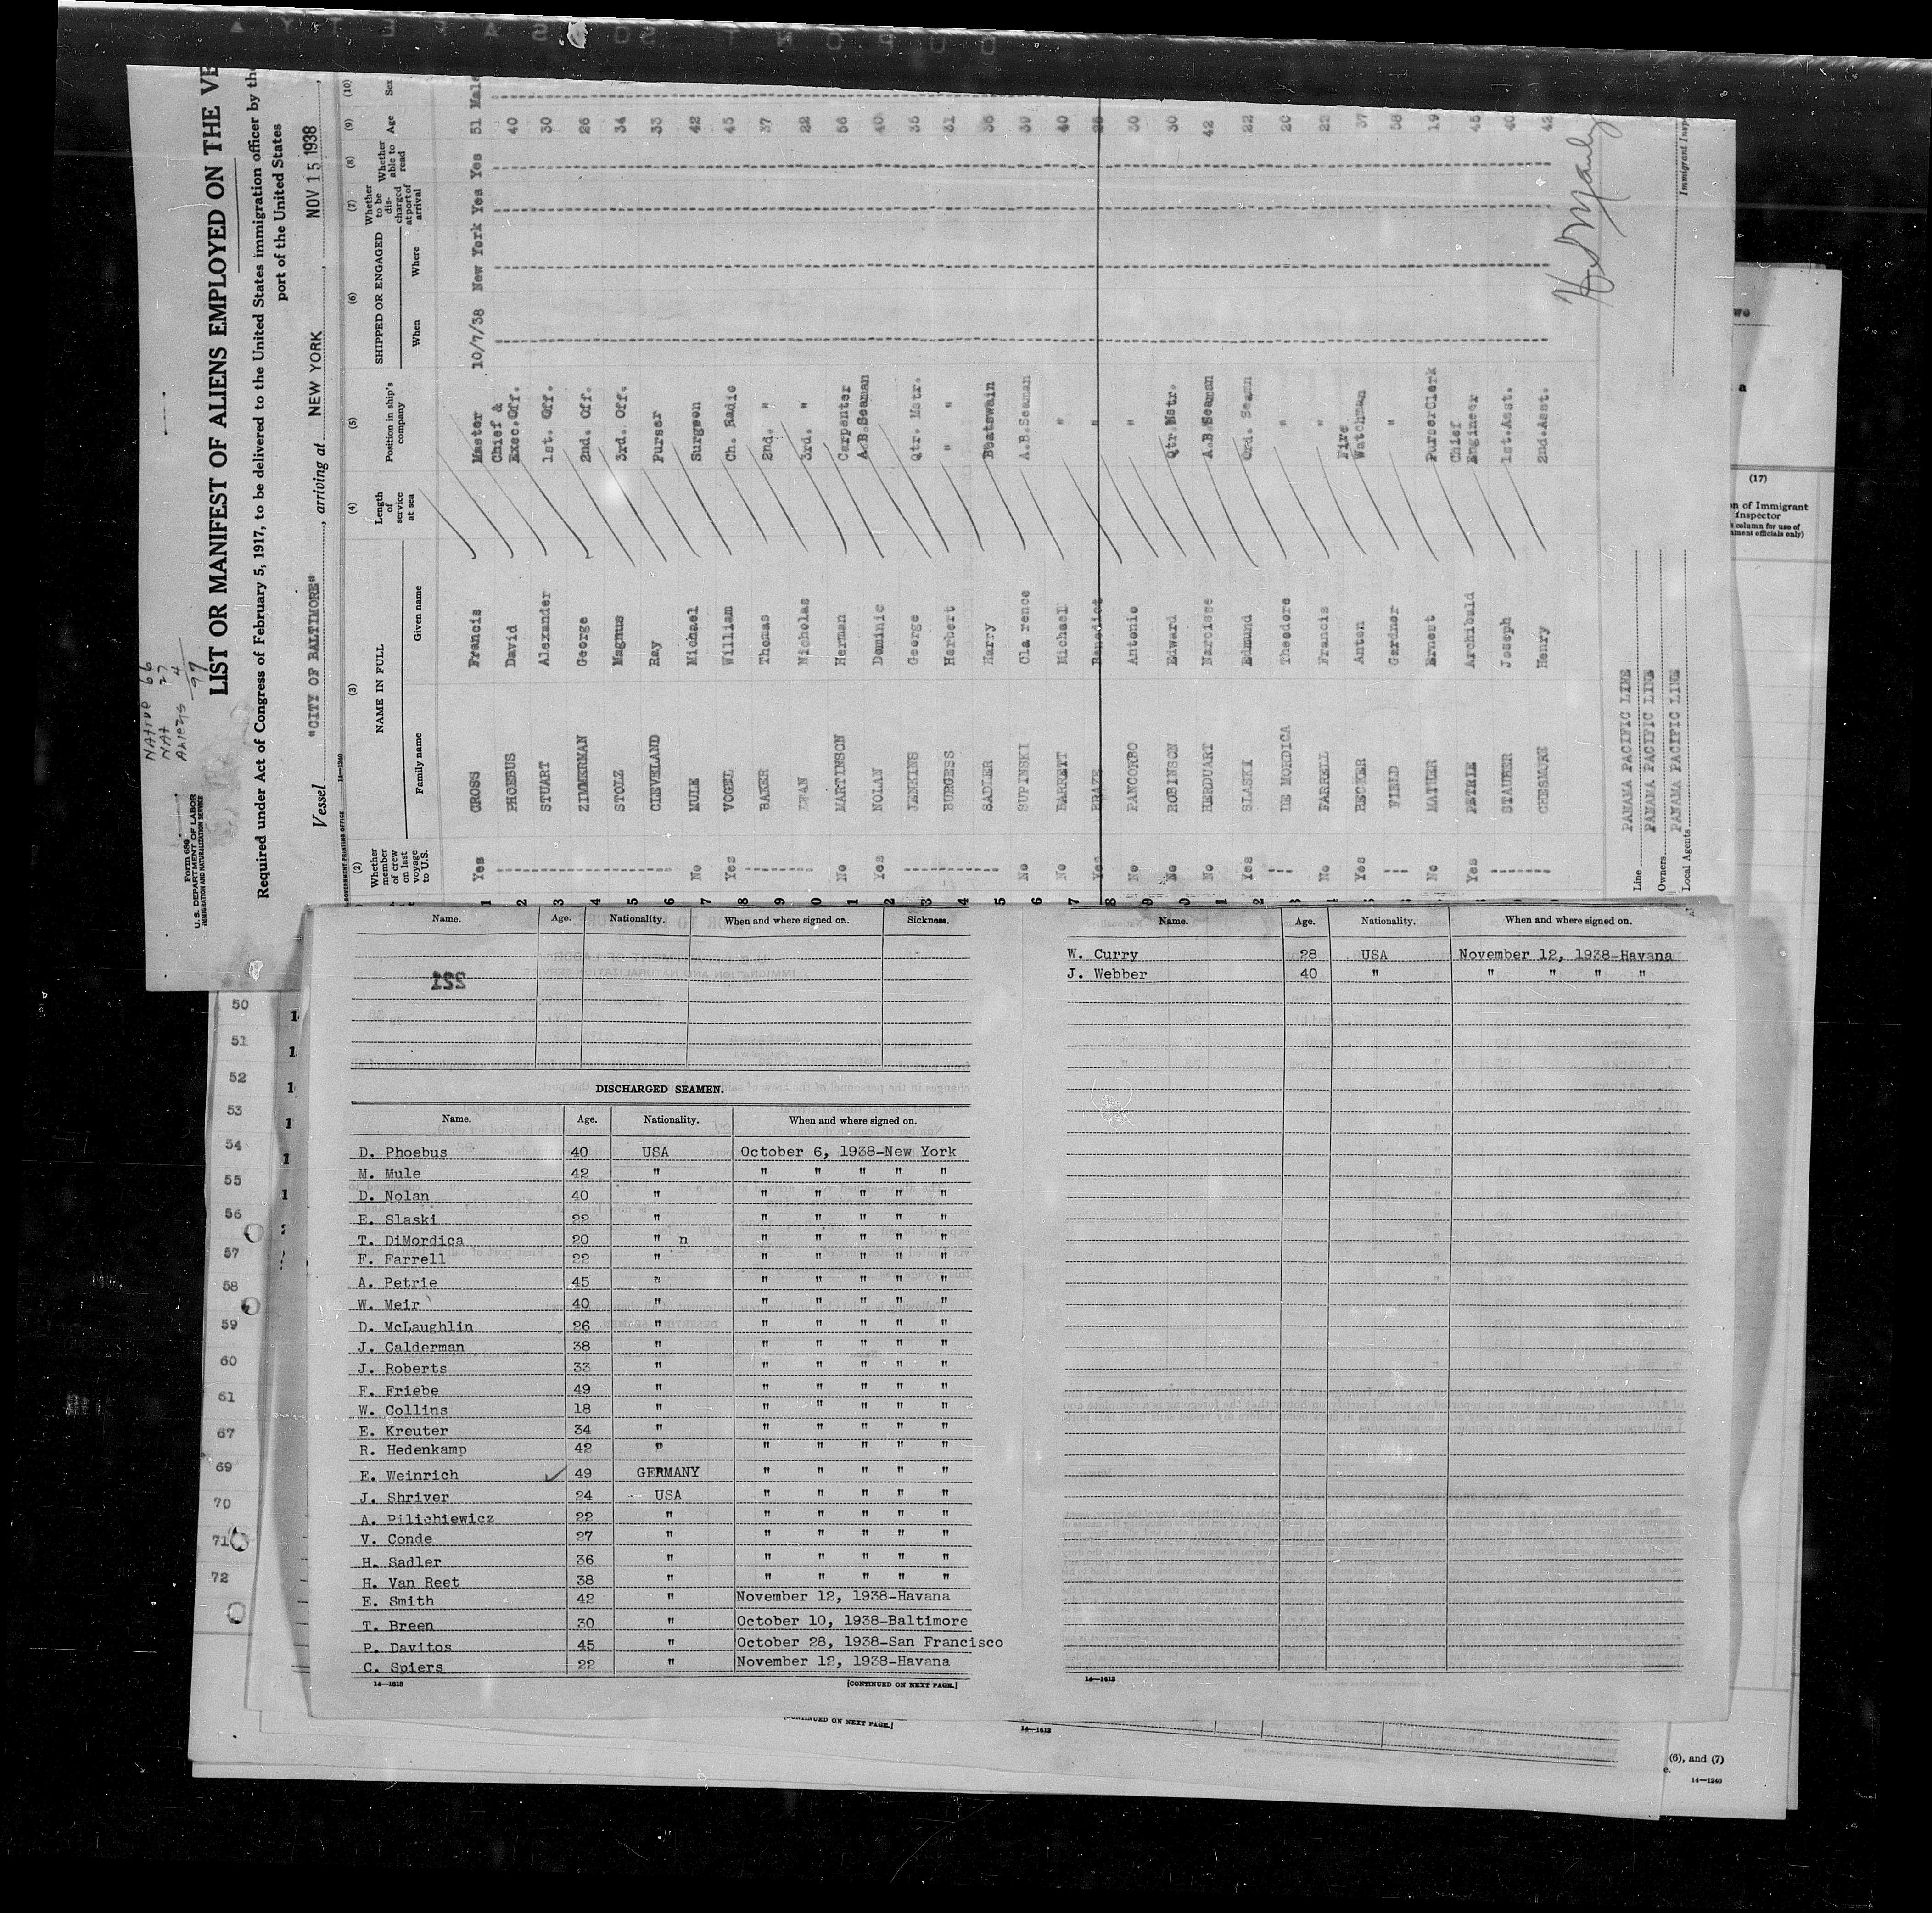 Form 680
U.S. DEPARTMENT OF LABOR
IMMIGRATION AND NATURALIZATION SERVICE
Native 66
Nat 27
Aliens 4
97
LIST OR MANIFEST OF ALIENS EMPLOYED ON THE VE
Required under Act of Congress of February 5, 1917, to be delivered to the United States immigration officer by the
port of the United States
Vessel "CITY OF BALTIMORE", arriving at NEW YORK, NOV 15 1938,
GOVERNMENT PRINTING OFFICE 14—1240
(2) (3) (4) (5) (6) (7) (8) (9) (10)
Whether member of crew on last voyage to U.S. NAME IN FULL Family name Given name Length of service at sea Position in ship's company SHIPPED OR ENGAGED When Where Whether to be discharged at port of arrival Whether able to read Age Sex
1 Yes GROSS Francis Master 10/7/38 New York Yes Yes 51 Male
2 PHOEBUS David Chief & Exec. Off. 40
3 STUART Alexander 1st. Off. 30
4 ZIMMERMAN George 2nd. Off. 26
5 STOLZ Magnus 3rd. Off. 34
6 CLEVELAND Ray Purser 33
7 No MULE Michael Surgeon 42
8 Yes VOGEL William Ch. Radio 45
9 BAKER Thomas 2nd. " 37
0 Nicholas 3rd. " 22
1 No MARTINSON Herman Carpenter 56
2 Yes NOLAN Dominic A.B.Seaman 40
3 JENKINS George Qtr. Mstr. 35
4 BURGESS Herbert " " 31
5 SADLER Harry Boatswain 36
6 No SUPINSKI Cla rence A.B.Seaman 39
7 No BARRETT Michael " 40
8 Yes BRAZE Benedict " 28
9 No PANCORBO Antonio " 30
0 No ROBINSON Edward Qtr.Mstr. 30
1 No HERDUART Narcisse A.B.Seaman 42
2 Yes SLASKI Edmund Ord. Seamn 22
DE MORDICA Theodore " 20
No FARRELL Francis " 22
Yes BECKER Anton Fire Watchman 37
FIELD Gardner " 58
No MATHER Ernest PurserClerk 19
Yes PETRIE Archibald Chief Engineer 45
STAUBER Joseph 1st.Asst. 40
CHESMORE Henry 2nd.Asst. 42
Line PANAMA PACIFIC LINE
Owners PANAMA PACIFIC LINE
Local Agents PANAMA PACIFIC LINE
Immigrant Insp
wo
a
(17)
on of Immigrant
Inspector
column for use of
ment officials only)
50
51
52
53
54
55
56
57
58
59
60
61
67
69
70
71
72
Name. Age. Nationality. When and where signed on. Sickness.
221
DISCHARGED SEAMEN.
Name. Age. Nationality. When and where signed on.
D. Phoebus 40 USA October 6, 1938-New York
M. Mule 42 " " " " " "
D. Nolan 40 " " " " " "
E. Slaski 22 " " " " " "
T. DiMordica 20 " n " " " " "
F. Farrell 22 " " " " " "
A. Petrie 45 " " " " " "
W. Meir 40 " " " " " "
D. McLaughlin 26 " " " " " "
J. Calderman 38 " " " " " "
J. Roberts 33 " " " " " "
F. Friebe 49 " " " " " "
W. Collins 18 " " " " " "
E. Kreuter 34 " " " " " "
R. Hedenkamp 42 " " " " " "
E. Weinrich 49 GERMANY " " " " "
J. Shriver 24 USA " " " " "
A. Pilichiewicz 22 " " " " " "
V. Conde 27 " " " " " "
H. Sadler 36 " " " " " "
H. Van Reet 38 " " " " " "
E. Smith 42 " November 12, 1938-Havana
T. Breen 30 " October 10, 1938-Baltimore
P. Davitos 45 " October 28, 1938-San Francisco
C. Spiers 22 " November 12, 1938-Havana
14—1613 [CONTINUED ON NEXT PAGE.]
Name. Age. Nationality. When and where signed on.
W. Curry 28 USA November 12, 1938-Havana
J. Webber 40 " " " " "
14—1613
[CONTINUED ON NEXT PAGE.]
14—1613
(6), and (7)
e.
14—1240